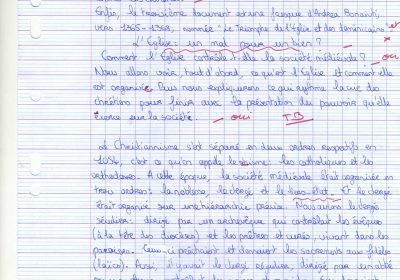 Enfin, le troisième document est une fresque d'Andrea Bonaiuti,
vers 1365-1368, nommée "Le Triomphe de l'Église et des dominicains" et
L'Église : un mal pour un bien ?
Comment l'Église contrôle-t-elle la société médiévale ?
Nous allons voir, tout d'abord, ce qu'est l'Église et comment elle
est organisée. Puis nous expliquerons ce qui rythme la vie des
chrétiens pour finir avec la présentation du pouvoirs qu'elle
exerce sur la société. oui TB
Le Christiannisme s'est séparé en deux ordres respectifs en
1054, c'est ce qu'on appelle le scisme : les catholiques et les
orthodoxes. A cette époque, la société médiévale était organisée en
trois ordres : la noblesse, le clergé et le tiers-état. Et le clergé
était organisé sur une hiérarchie précise. Nous avions le clergé
séculier : dirigé par un archevêque qui contrôlait les évêques
(à la tête des diocèses) et les prêtres et curés, vivant dans les
paroisses. Ceux-ci prêchaient et donnaient les sacrements aux fidèles
(laïcs). Aussi, il y avait le clergé régulier, dirigé par un abbé